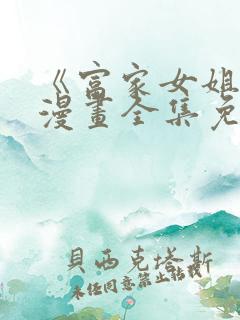 《富家女姐
漫畫全集免
貝西克塔斯
未经同意禁止转载